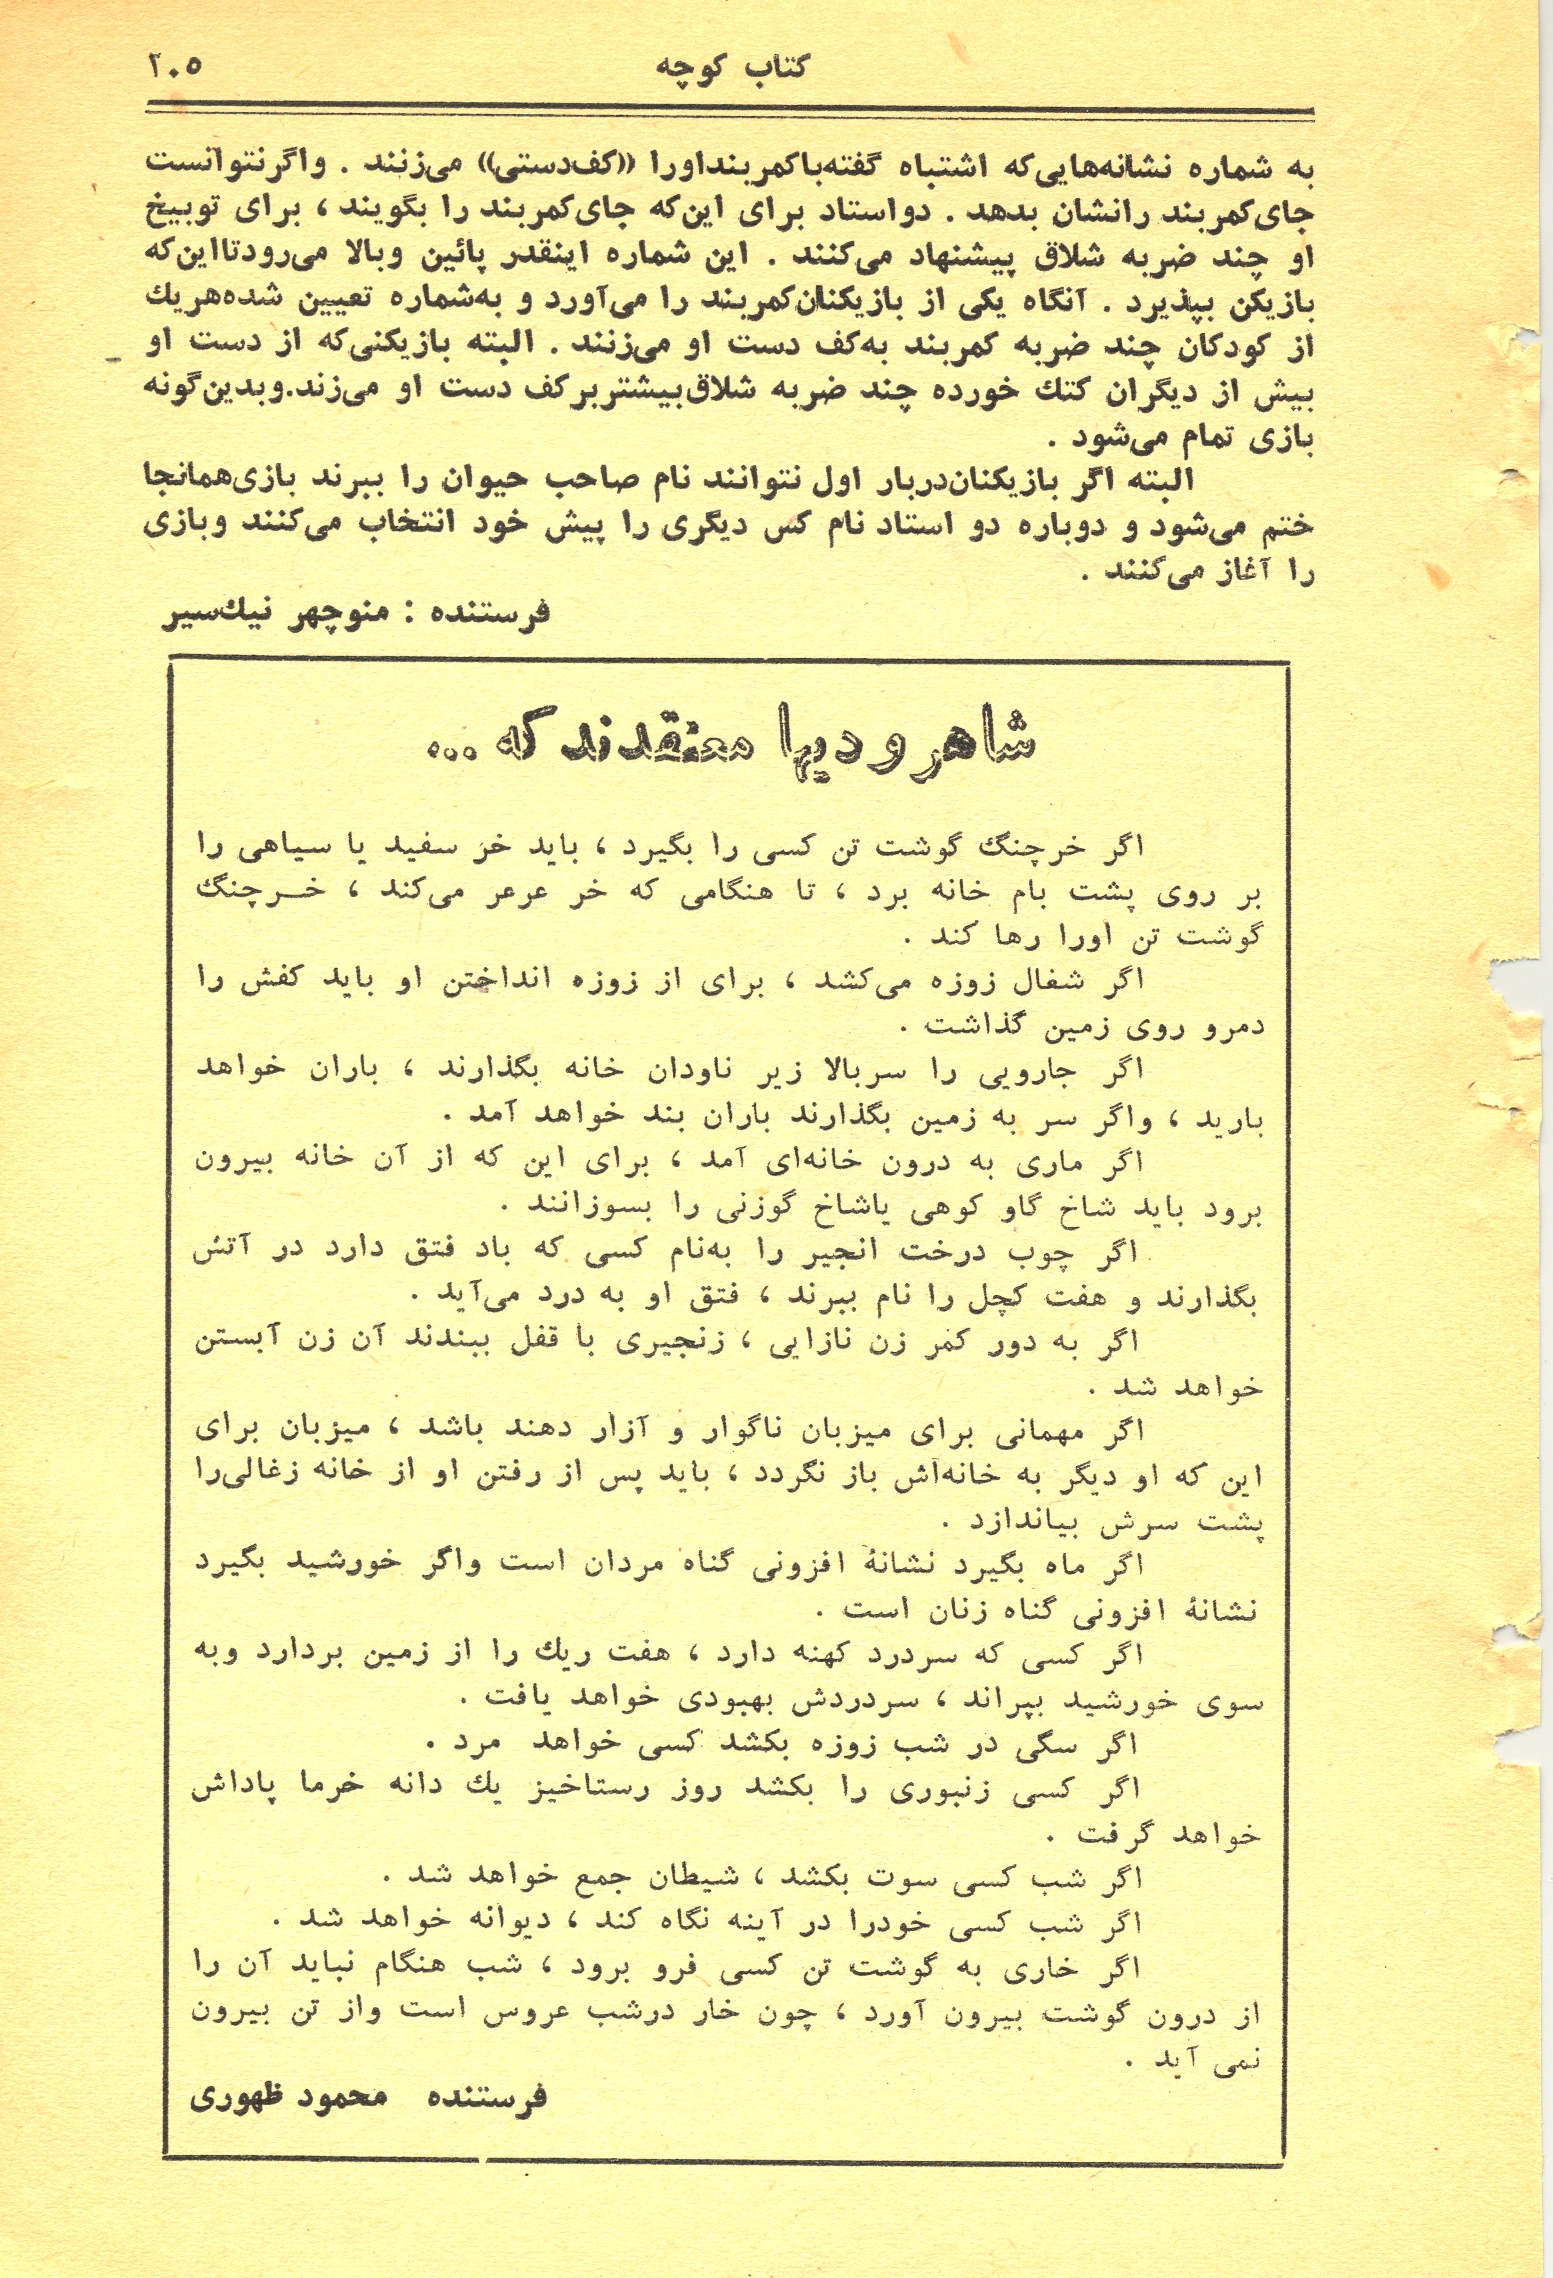 کتاب کوچه
۲۰۵
به شماره نشانه‌هایی‌که اشتباه گفته‌باکمربنداورا «کف‌دستی» می‌زنند . واگرنتوانست
جای‌کمربند رانشان بدهد . دواستاد برای این‌که جای‌کمربند را بگویند ، برای توبیخ
او چند ضربه شلاق پیشنهاد می‌کنند . این شماره اینقدر پائین وبالا می‌رودتااین‌که
بازیکن بپذیرد . آنگاه یکی از بازیکنان‌کمربند را می‌آورد و به‌شماره تعیین شده‌هریك
از کودکان چند ضربه کمربند به‌کف دست او می‌زنند . البته بازیکنی‌که از دست او
بیش از دیگران کتك خورده چند ضربه شلاق‌بیشتربرکف دست او می‌زند.وبدین‌گونه
بازی تمام می‌شود .
البته اگر بازیکنان‌دربار اول نتوانند نام صاحب حیوان را ببرند بازی‌همانجا
ختم می‌شود و دوباره دو استاد نام کس دیگری را پیش خود انتخاب می‌کنند وبازی
را آغاز می‌کنند .
فرستنده : منوچهر نیك‌سیر
شاهرودیها معتقدند که ...
اگر خرچنگ گوشت تن کسی را بگیرد ، باید خر سفید یا سیاهی را
بر روی پشت بام خانه برد ، تا هنگامی که خر عرعر می‌کند ، خـرچنگ
گوشت تن اورا رها کند .
اگر شغال زوزه می‌کشد ، برای از زوزه انداختن او باید کفش را
دمرو روی زمین گذاشت .
اگر جارویی را سربالا زیر ناودان خانه بگذارند ، باران خواهد
بارید ، واگر سر به زمین بگذارند باران بند خواهد آمد .
اگر ماری به درون خانه‌ای آمد ، برای این که از آن خانه بیرون
برود باید شاخ گاو کوهی یاشاخ گوزنی را بسوزانند .
اگر چوب درخت انجیر را به‌نام کسی که باد فتق دارد در آتش
بگذارند و هفت کچل را نام ببرند ، فتق او به درد می‌آید .
اگر به دور کمر زن نازایی ، زنجیری با قفل ببندند آن زن آبستن
خواهد شد .
اگر مهمانی برای میزبان ناگوار و آزار دهند باشد ، میزبان برای
این که او دیگر به خانه‌اش باز نگردد ، باید پس از رفتن او از خانه زغالی‌را
پشت سرش بیاندازد .
اگر ماه بگیرد نشانهٔ افزونی گناه مردان است واگر خورشید بگیرد
نشانهٔ افزونی گناه زنان است .
اگر کسی که سردرد کهنه دارد ، هفت ریك را از زمین بردارد وبه
سوی خورشید بپراند ، سردردش بهبودی خواهد یافت .
اگر سگی در شب زوزه بکشد کسی خواهد مرد .
اگر کسی زنبوری را بکشد روز رستاخیز یك دانه خرما پاداش
خواهد گرفت .
اگر شب کسی سوت بکشد ، شیطان جمع خواهد شد .
اگر شب کسی خودرا در آینه نگاه کند ، دیوانه خواهد شد .
اگر خاری به گوشت تن کسی فرو برود ، شب هنگام نباید آن را
از درون گوشت بیرون آورد ، چون خار درشب عروس است واز تن بیرون
نمی آید .
فرستنده محمود ظهوری